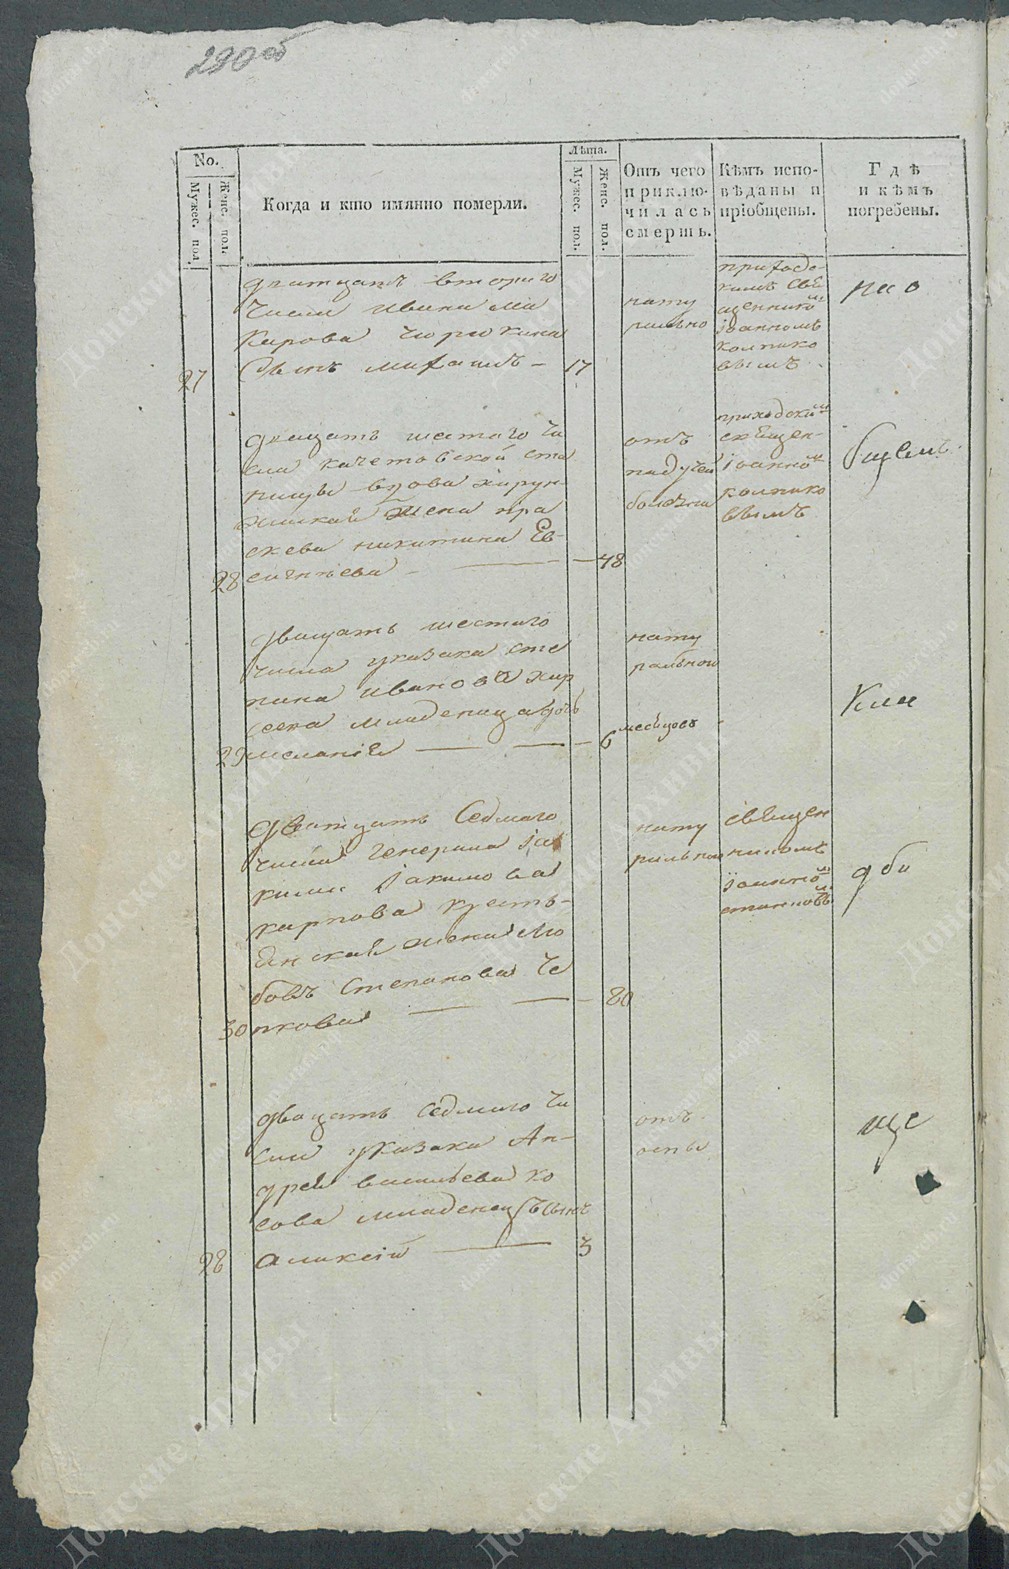 290об
No.
Мужес. пол.
Женс. пол.
Когда и кто имянно померли.
Лѣта.
Мужес. пол.
Женс. пол.
Отъ чего
приклю-
чилась
смерть.
Кѣмъ испо-
вѣданы и
пріобщены.
Гдѣ
и кѣмъ
погребены.
числа ивана ма
карова
27 Сынъ михаилъ – 17
нату
рально
приходс-
кимъ свя
щеннико м
іоанномъ
колпико
вымъ
на о
двацать шестаго чи
сла качетовской ста
ницы вдова хорун-
жинская жена пра
сковя никитина Ев-
28 сигнѣева – 48
отъ
падучей
болѣзни
приходским
священ-
іоанно м
колпико
вымъ
бщемъ
двацать шестаго
числа указака сте
пана иванова кир
сена младеница дочь
29 мелания – 6 месецовъ
нату
ральной
Кла
дватцать Седмаго
числа Генерала іа
кима іакимова
карпова кресть-
янская жена лю
бовь степанова че
30 пковая – 80
нату
рально
священ
никомъ
іоанно м
дби
двацать седмаго чи
сла указака Ан-
дрея васильева ко
сова младенецъ сынъ
28 алексій – 3
отъ
оспы
ще